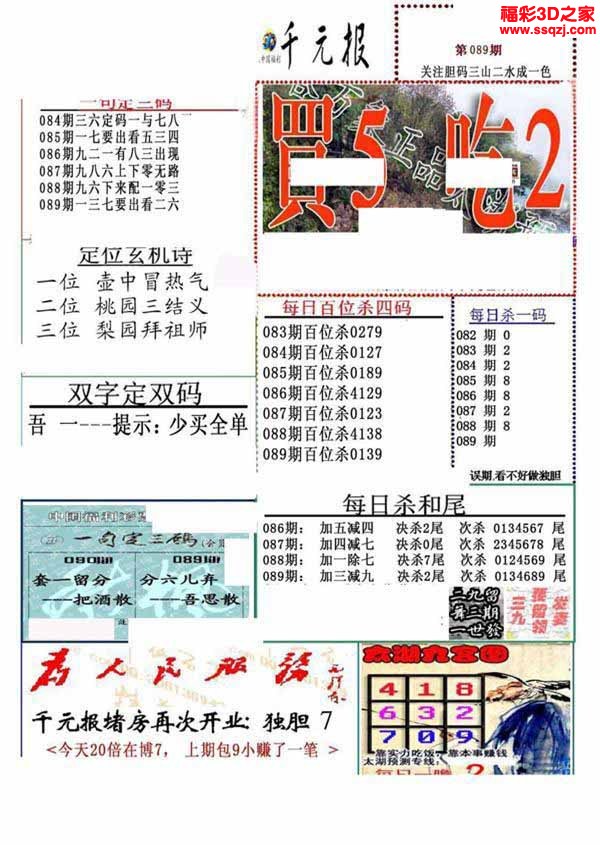 福彩3D之家
www.ssqzj.com
千元报
中国福彩
第089期
关注胆码三山二水成一色
一句定三码
084期三六定码一与七八
085期一七要出看五三四
086期九二一有八三出现
087期九八六上下零无路
088期九六下来配一零三
089期一三七要出看二六
買5 吃2
正品
定位玄机诗
一位 壶中冒热气
二位 桃园三结义
三位 梨园拜祖师
每日百位杀四码
083期百位杀0279
084期百位杀0127
085期百位杀0189
086期百位杀4129
087期百位杀0123
088期百位杀4138
089期百位杀0139
每日杀一码
082 期 0
083 期 2
084 期 2
085 期 8
086 期 8
087 期 2
088 期 8
089 期
误期,看不好做独胆
双字定双码
吾 一---提示：少买全单
每日杀和尾
086期： 加五减四 决杀2尾 次杀 0134567 尾
087期： 加四减七 决杀0尾 次杀 2345678 尾
088期： 加一除七 决杀7尾 次杀 0124569 尾
089期： 加三减九 决杀2尾 次杀 0134689 尾
中国福利彩票
一句定三码
090期 089期
套—留分 分六儿弃
—把酒散 —吾思散
二九留
三期
一世發
三九
为人民服务
千元报堵房再次开业: 独胆 7
<今天20倍在博7， 上期包9小赚了一笔 >
太湖九宫图
4 1 8
6 3 2
7 0 9
靠实力吃饭，靠本事赚钱
太湖预测专线:
每日一胆 2